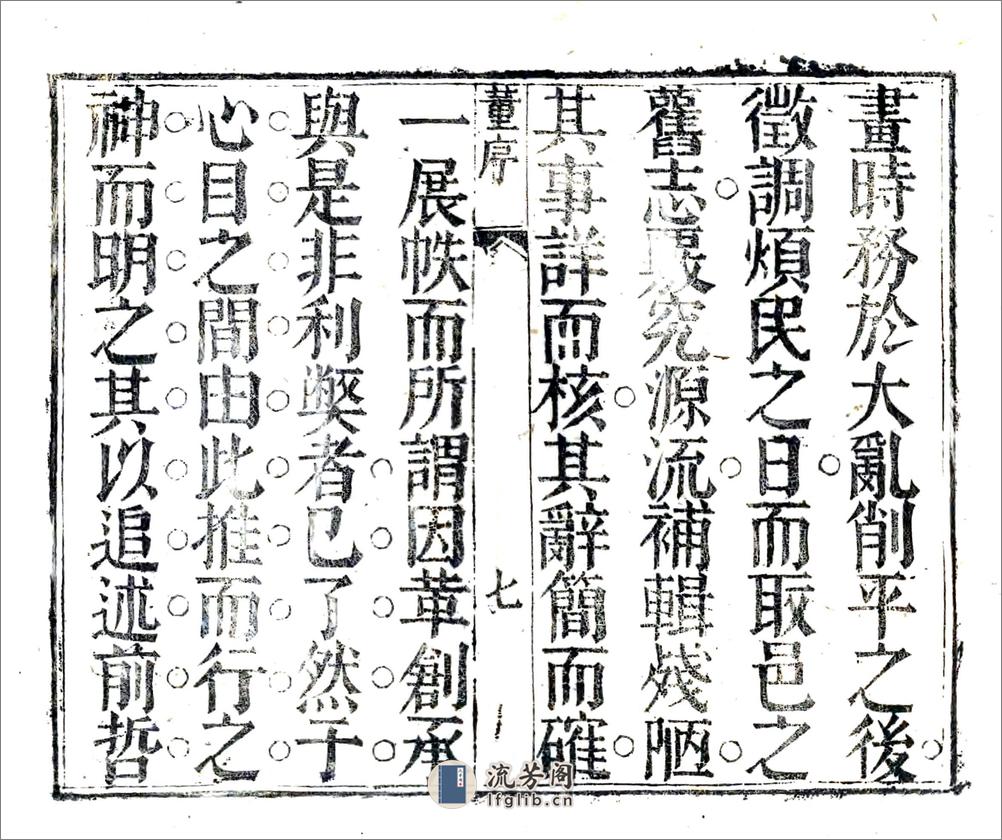 畫時務於大亂削平之後
徵調煩民之日而取邑之
舊志覈究源流補輯殘陋
其事詳而核其辭簡而確
董序 七
一展帙而所謂因革創承
與是非利獘者已了然于
心目之間由此推而行之
神而明之其以追述前哲
流芳阁
lfglib.cn